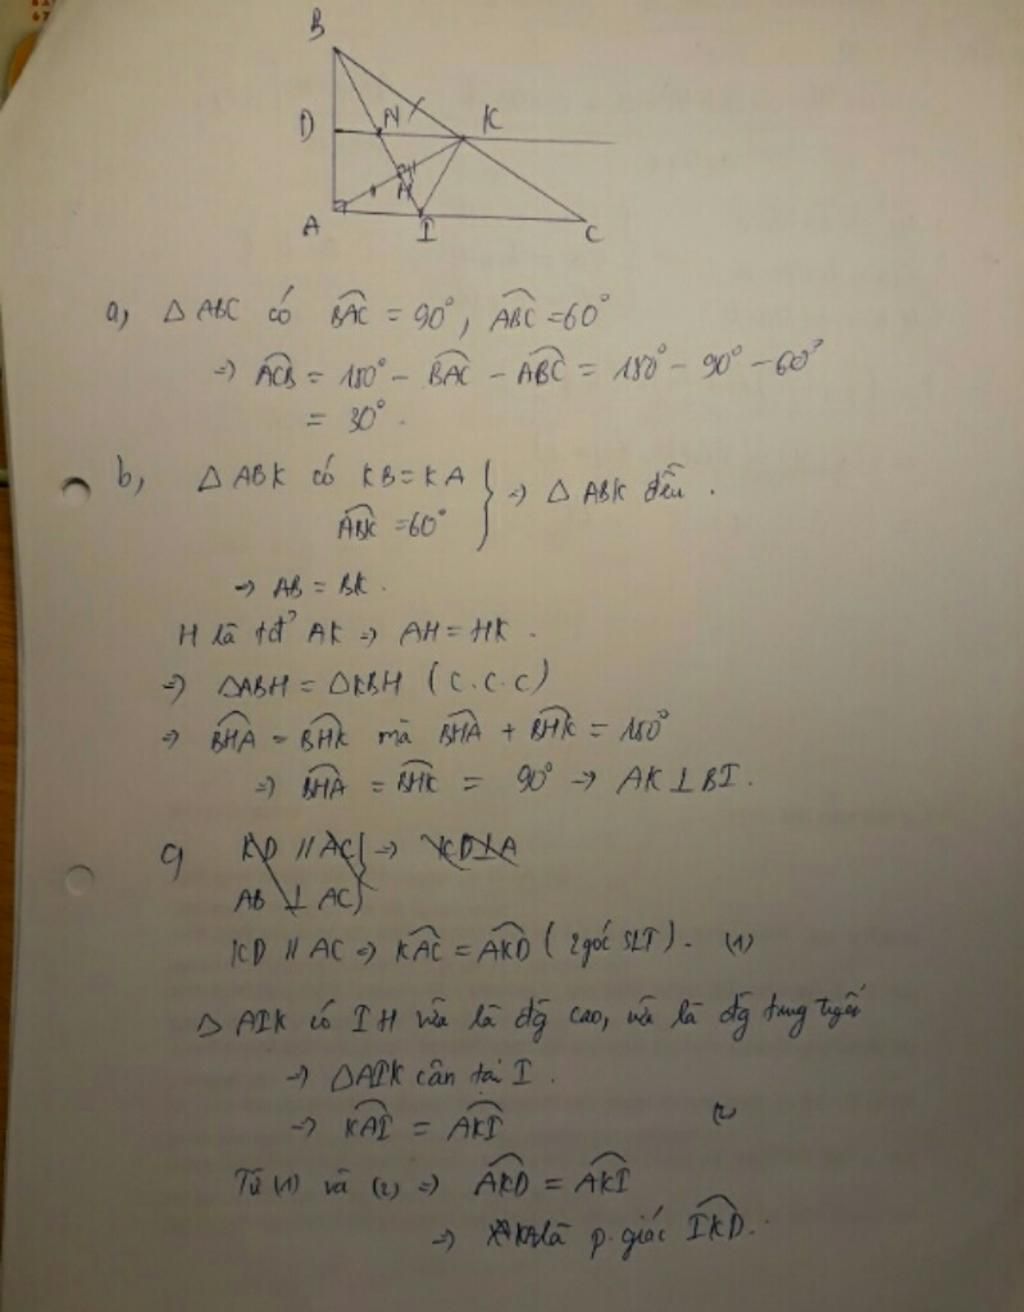 B
D N K
H
A I C
a, △ ABC có BAC = 90°, ABC = 60°
=> ACB = 180° - BAC - ABC = 180° - 90° - 60°
= 30°.
b, △ ABK có KB = KA
ABK = 60° } => △ ABK đều.
=> AB = BK.
H là tđ AK => AH = HK.
=> △ABH = △KBH (C.C.C)
=> BHA = BHK mà BHA + BHK = 180°
=> BHA = BHK = 90° -> AK ⊥ BI.
c, KD // AC } => KD ⊥ A
AB ⊥ AC
KD // AC => KAC = AKD (2 góc SLT). (1)
△ AIK có IH vừa là đg cao, vừa là đg trung tuyến
=> △AIK cân tại I.
=> KAI = AKI (2)
Từ (1) và (2) => AKD = AKI
=> KA là p. giác IKD.